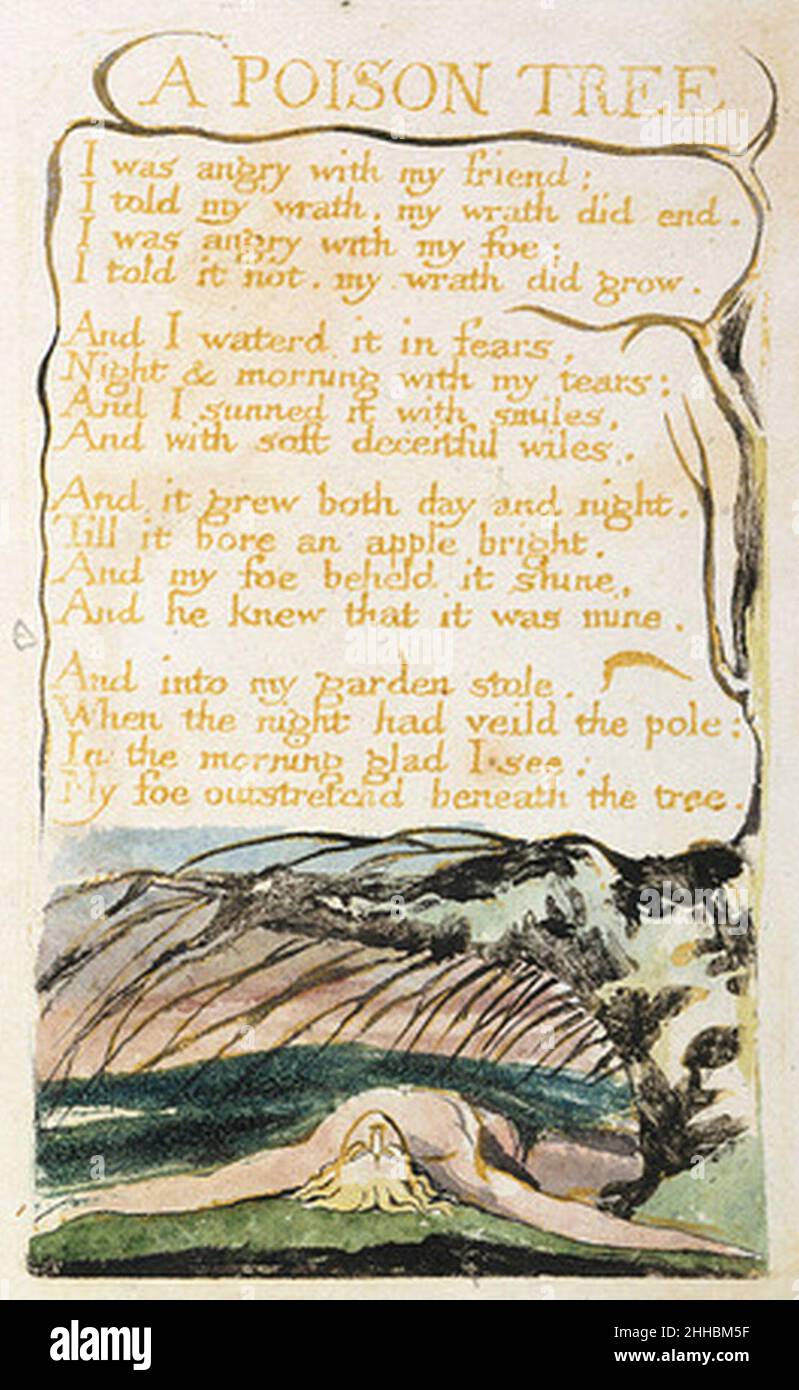 A POISON TREE
I was angry with my friend:
I told my wrath, my wrath did end.
I was angry with my foe:
I told it not, my wrath did grow.
And I waterd it in fears,
Night & morning with my tears:
And I sunned it with smiles,
And with soft deceitful wiles.
And it grew both day and night.
Till it bore an apple bright.
And my foe beheld it shine,
And he knew that it was mine.
And into my garden stole.
When the night had veild the pole:
In the morning glad I see:
My foe outstretchd beneath the tree.
alamy
alamy
Image ID: 2HHBM5F
www.alamy.com